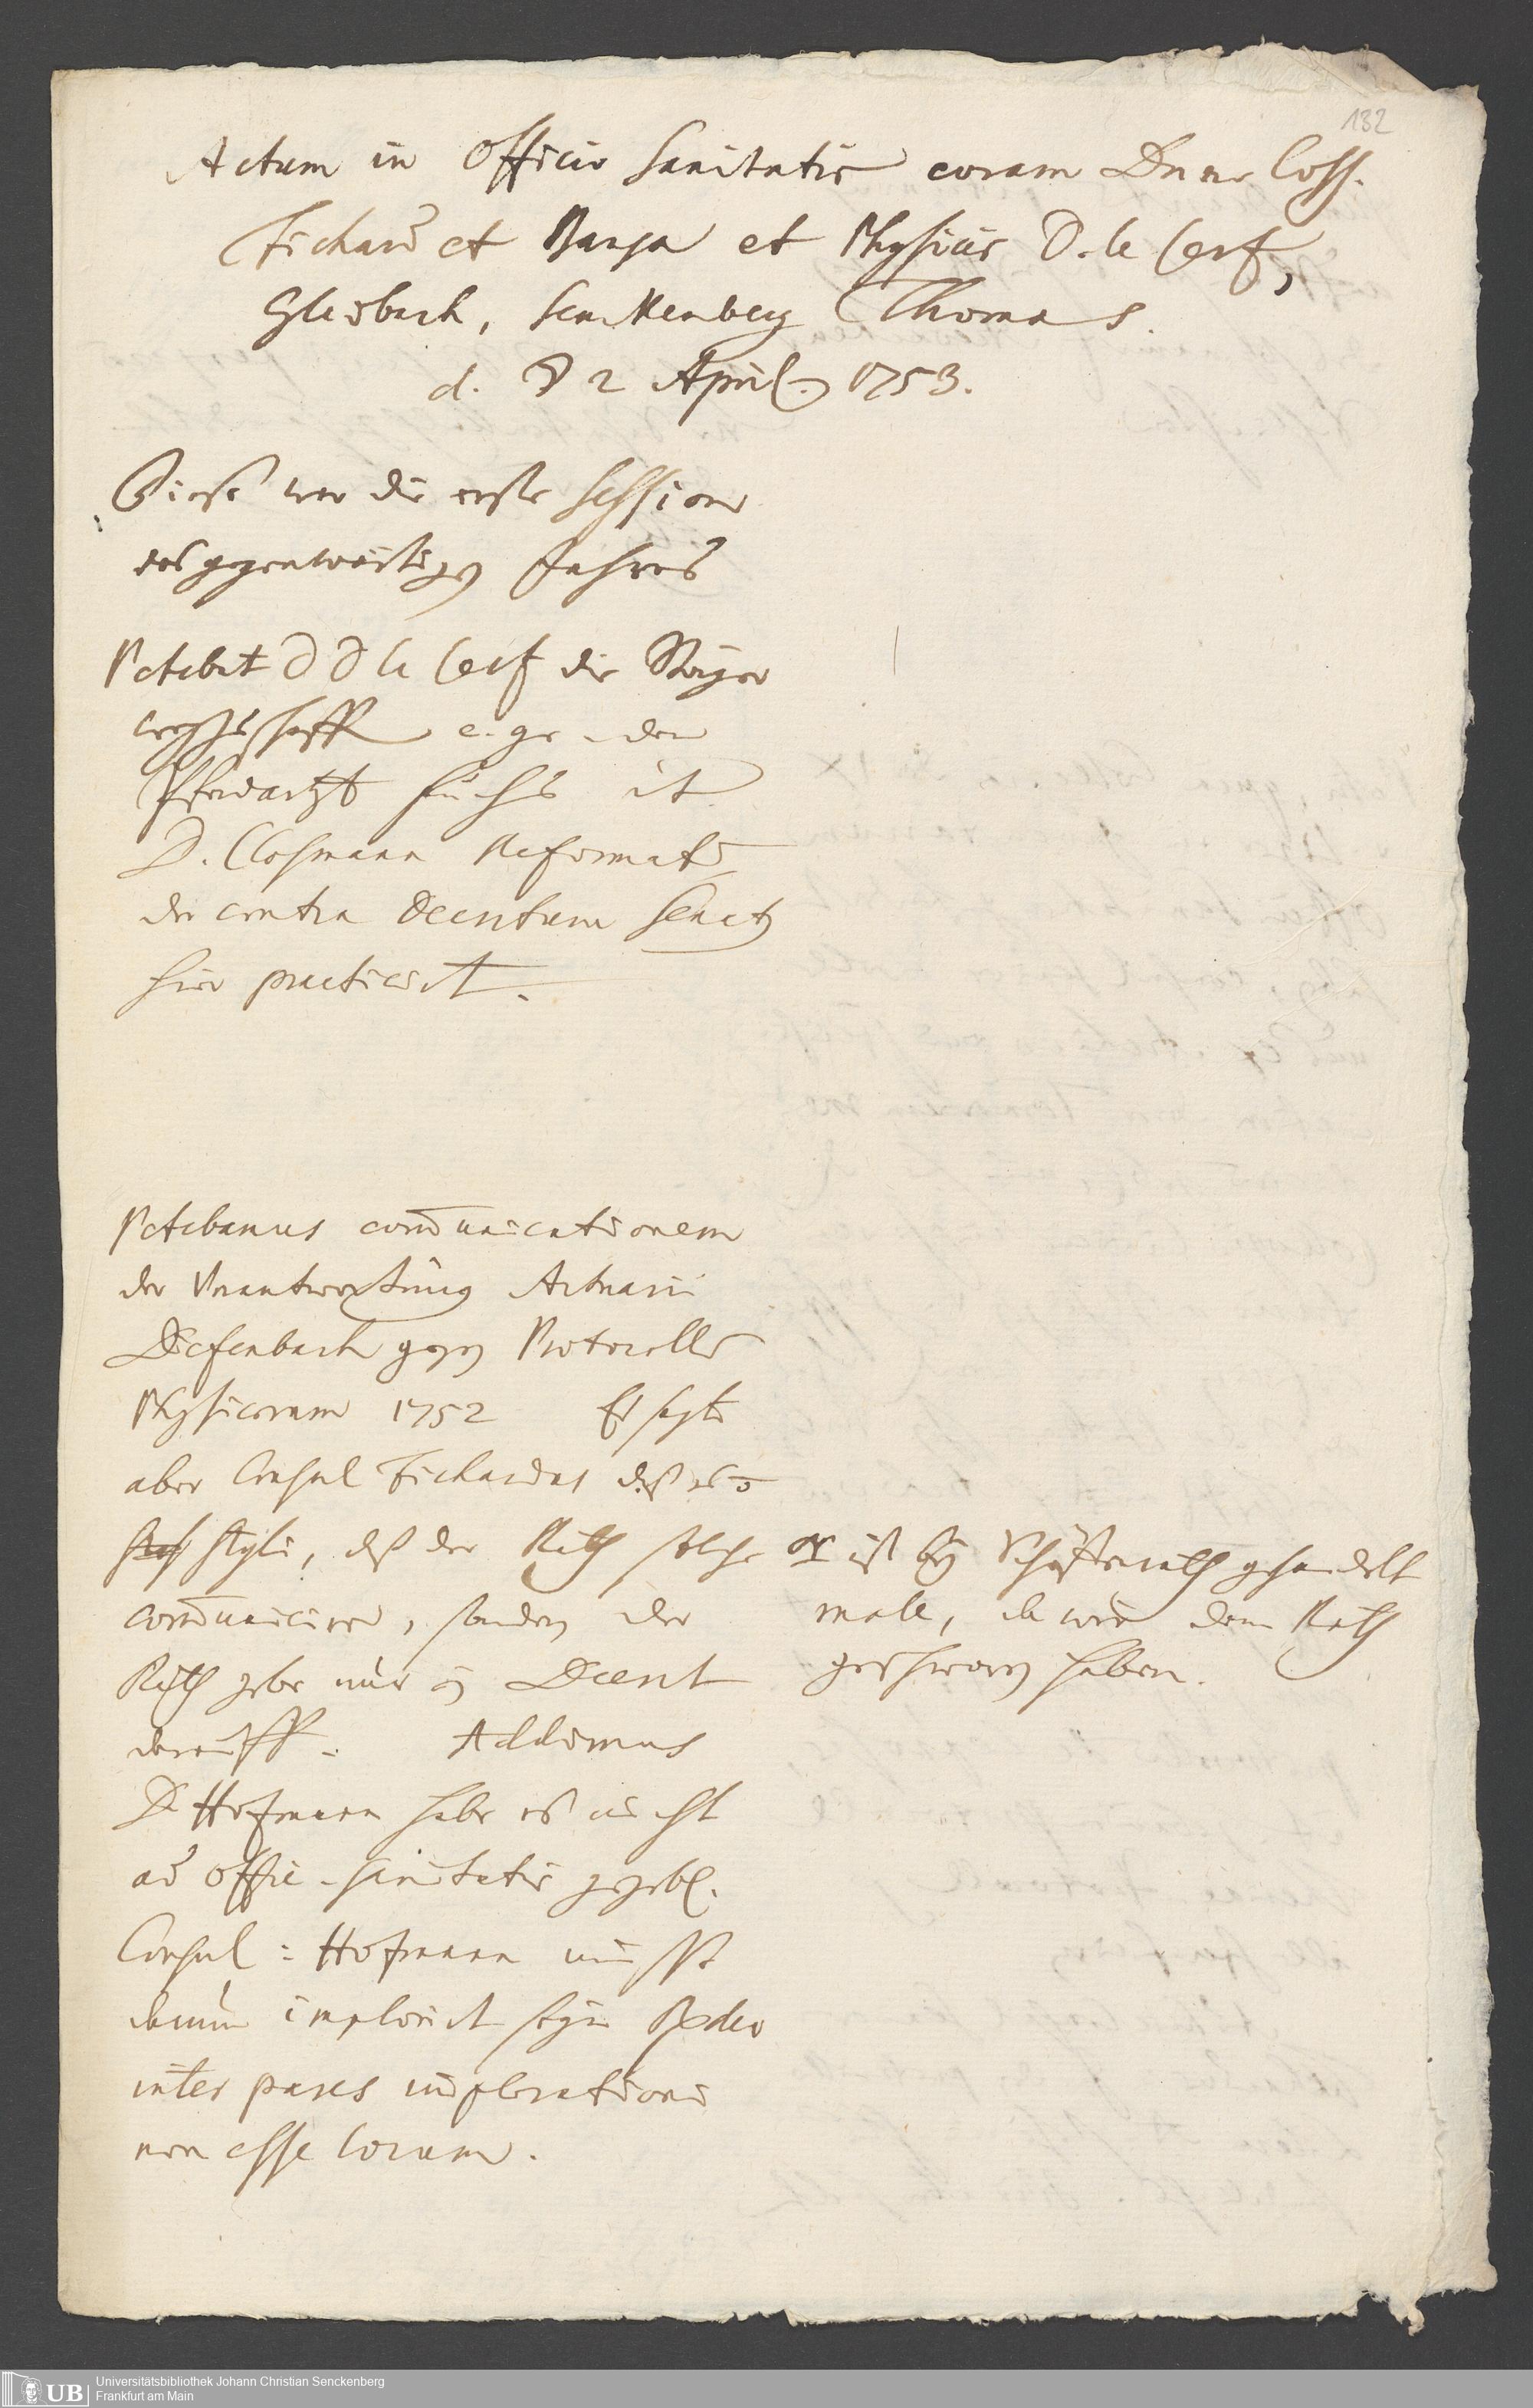 132
Actum in Officio Sanitatis coram Dnn. Coss.
Fichard et Bansa et Physicis D. le Cerf,
Gladbach, Senckenberg Thomas.
d. 2 April. 1753.
Diese war die erste Session
des gegenwärtigen Jahres
Petebat D D le Cerf die
e. gr. den
Pferdartzt Fuchs it.
D. Closmann Reformat
der contra Decretum Senat
hier practicirt.
Petebamus com̄unicationem
der Verantwortung Actuarii
Diefenbach gegen Protocolla
Physicorum 1752 Es sagte
aber Consul Fichardus daß es
styli, daß der Rath solche
com̄unicire, sondern der
Rath gebe nur ein Decret
darauff. Addimus
D Hofmann habe es nicht
ad Offic. Sanitatis gegeben.
Consul: Hofmann müsste
darum implorirt seyn
inter pares implorationi
non esse locum.
ist bey Schöffenrath gehandelt
male, da wir dem Rath
geschworen haben.
UB Universitätsbibliothek Johann Christian Senckenberg
Frankfurt am Main